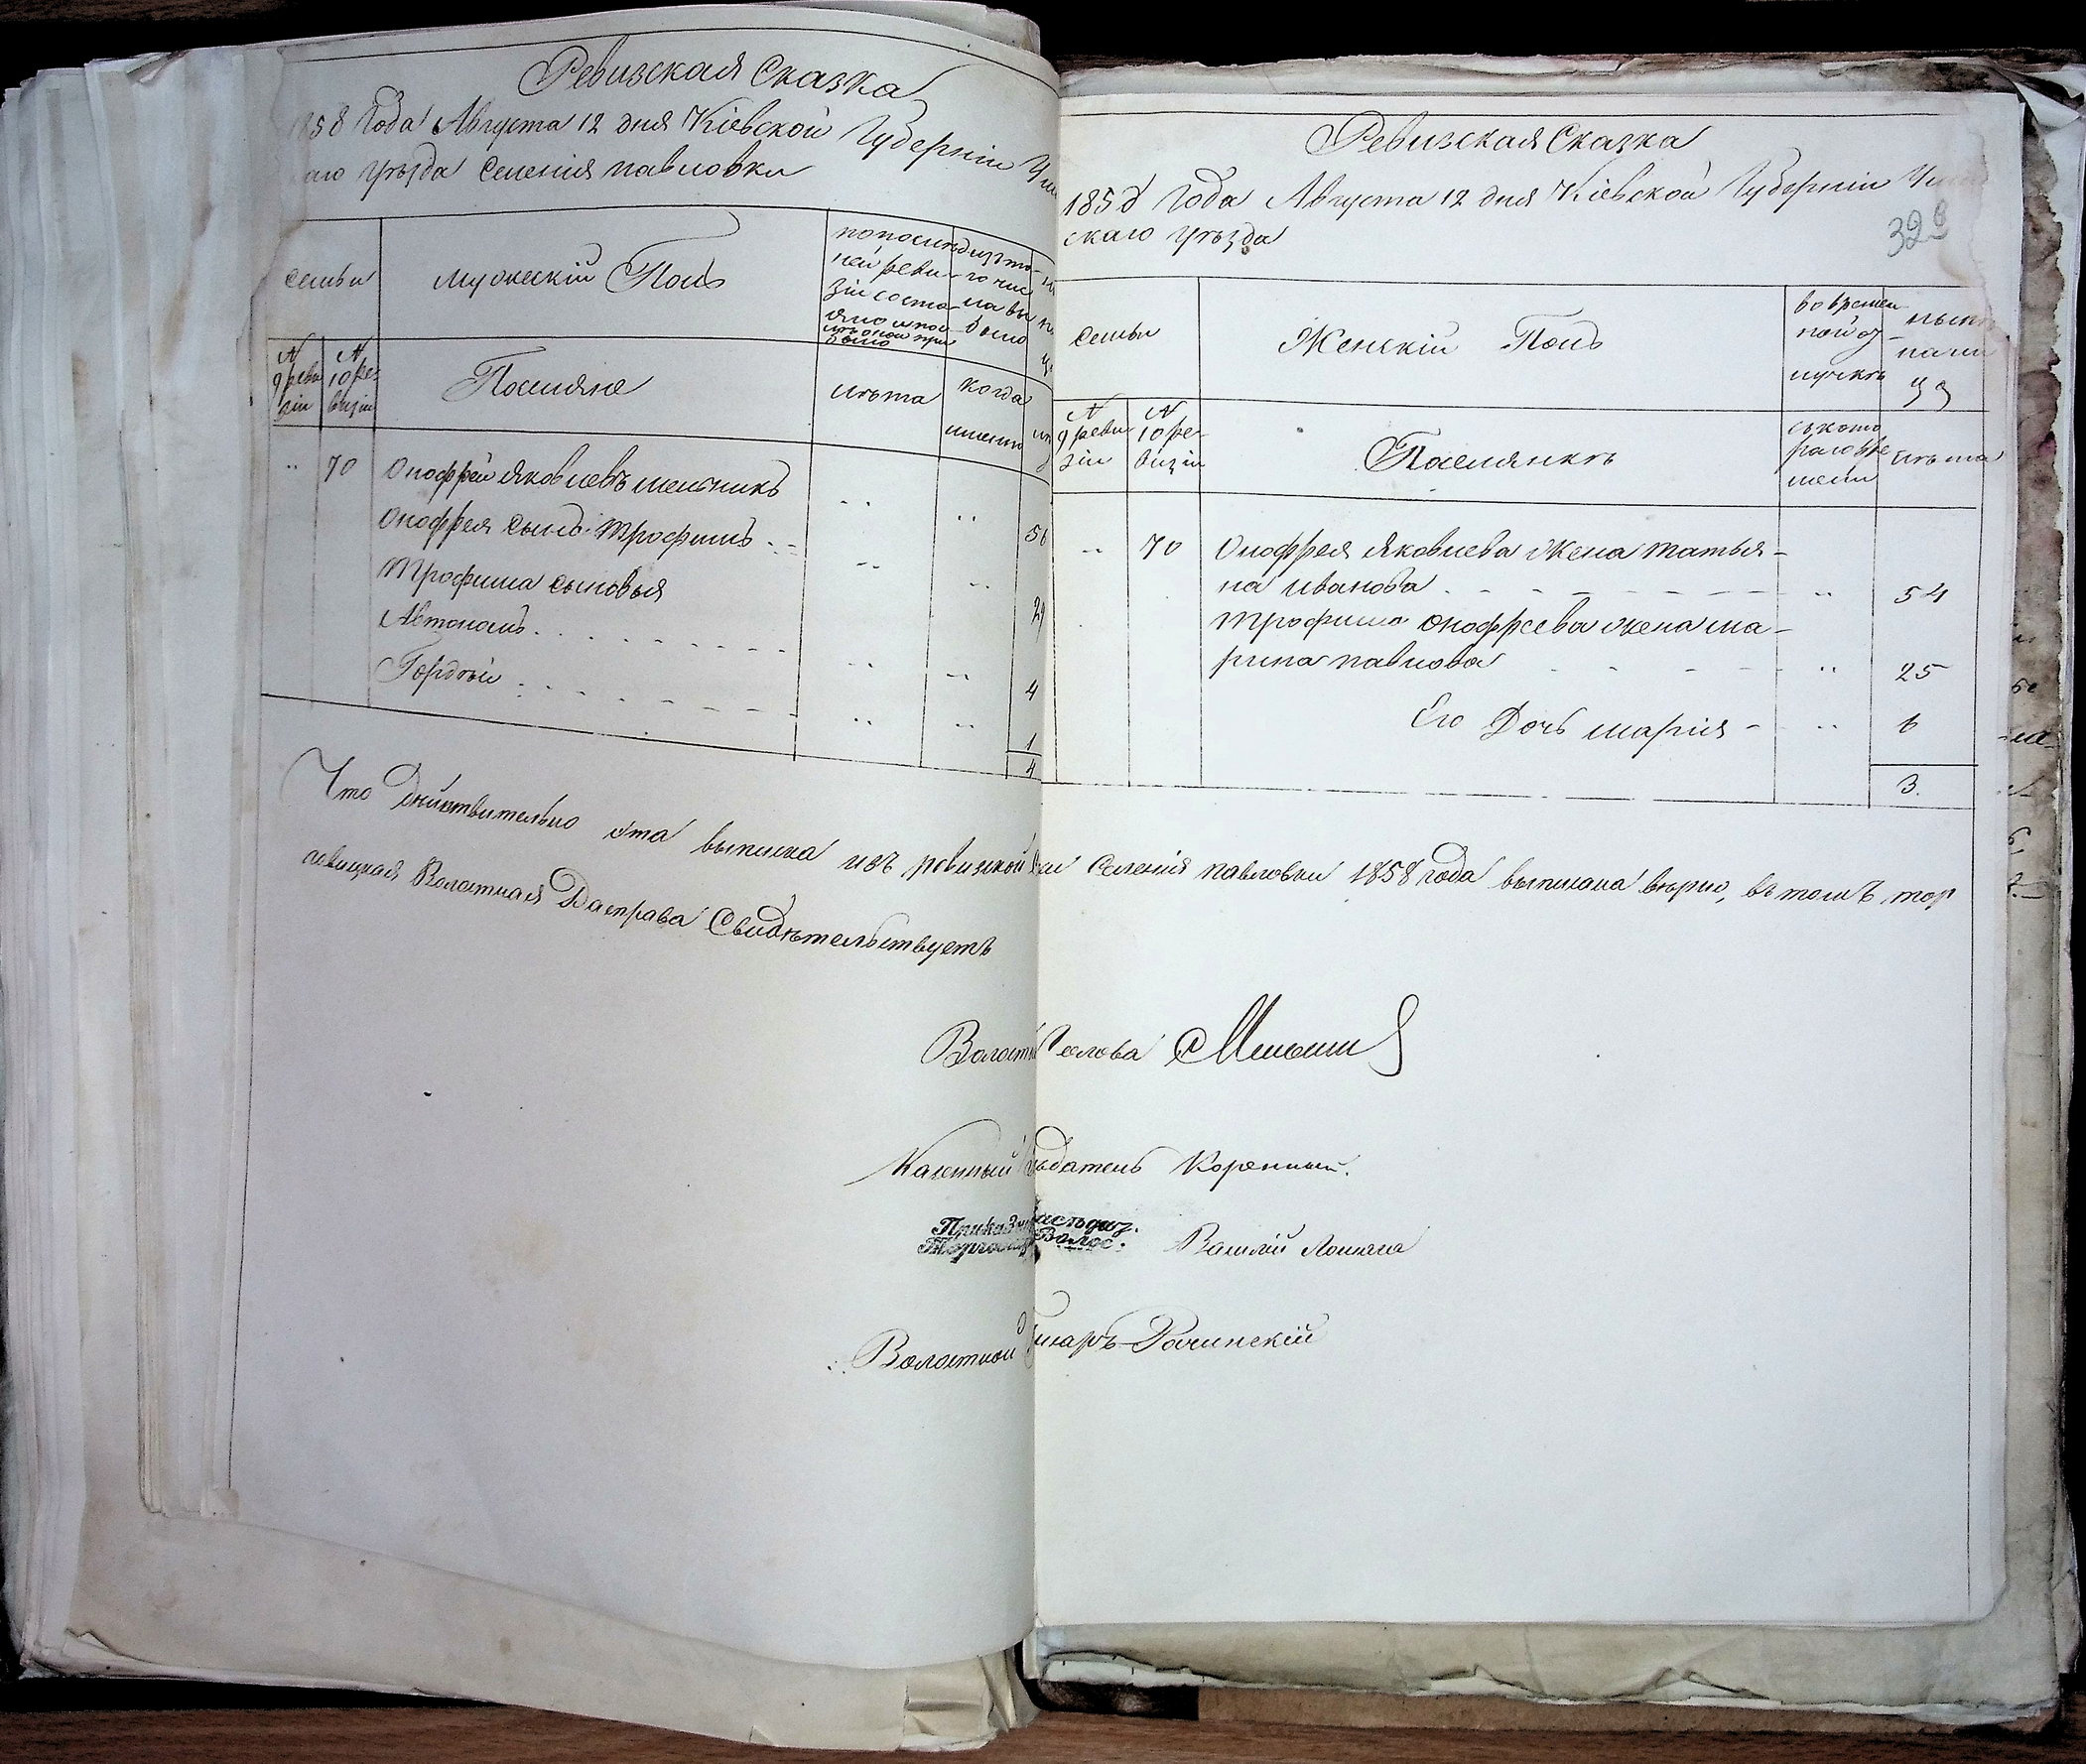 Ревизская Сказка
1858 Года Августа 12 дня Кіевской Губерніи
Уѣзда Селенія павловки
семьи
мужескій Полъ
по послѣд
ней реви
зіи состо
яло и пос
лѣ оной при
было
изъ то
го чис
ла вы
было
N
9 реви
зіи
N
10 ре-
визіи
Поселяне
лѣта
когда
именно
" 70 Оноффрей Яковлевъ мельникъ
56
Оноффрея сынъ Трофимъ
29
Трофима сыновья
Автономъ
4
Гордѣй
1
4
Ревизская Сказка
1858 Года Августа 12 дня Кіевской Губерніи
скаго уѣзда
семьи
Женскій Полъ
во времен
ной от
лучкѣ
нынѣ
на ли
цо
N
9 реви
зіи
N
10 ре-
визіи
Поселянкѣ
съ кото
раго вре
мени
лѣта
" 70 Оноффрея Яковлева жена татья-
на иванова " 54
трофима оноффреева жена ма-
рина павлова " 25
Его Дочь марія - " 6
3.
Что дѣйствительно эта выписка изъ ревизкой селенія павловки 1858 года выписана вѣрно, въ томъ тор
Волостная Расправа Свидѣтельствуетъ
Волостн Голова
Казенный Коренный.
Василій
Волостной Писарь